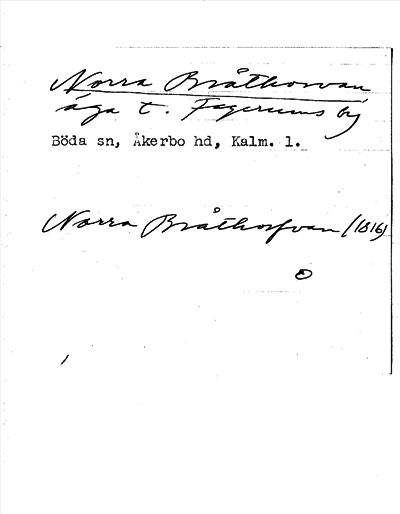 Norra Bråthorvan
äga t. Fagerums by
Böda sn, Åkerbo hd, Kalm. l.
Norra Bråthorfvan (1816)